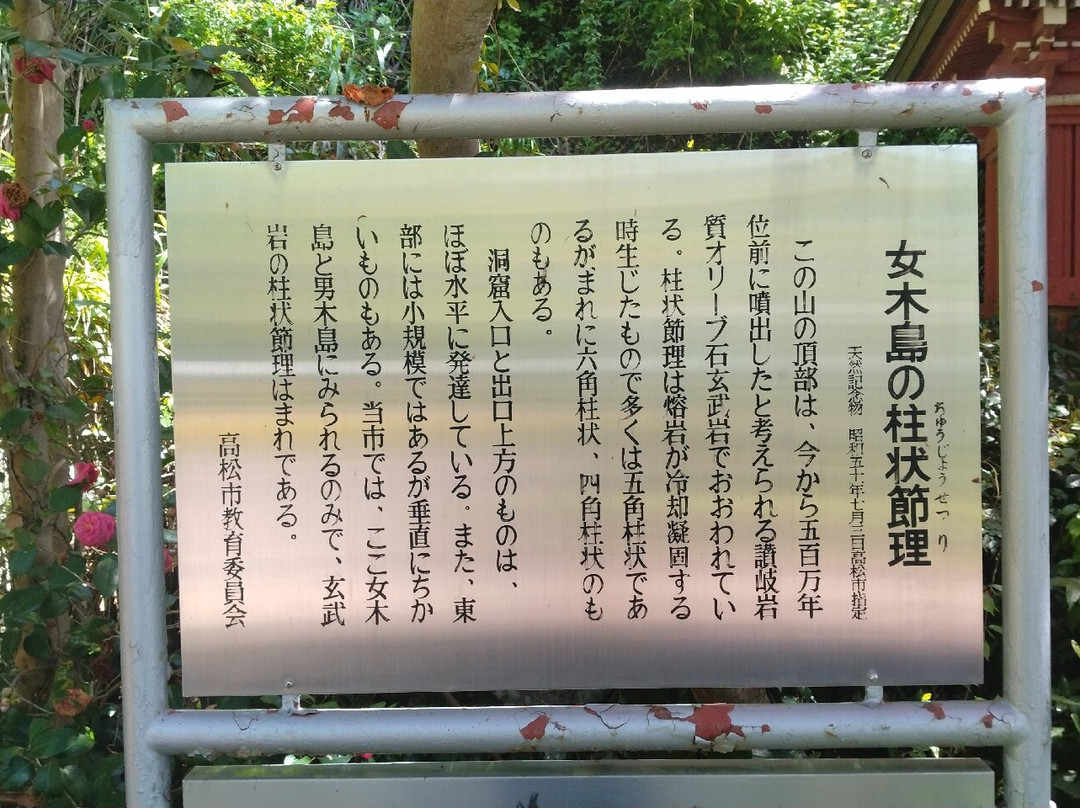 女木島の柱状節理
ちゅうじょうせつり
天然記念物 昭和五十年七月三日高松市指定
この山の頂部は、今から五百万年
位前に噴出したと考えられる讃岐岩
質オリーブ石玄武岩でおおわれてい
る。柱状節理は熔岩が冷却凝固する
時生じたもので多くは五角柱状であ
るがまれに六角柱状、四角柱状のも
のもある。
洞窟入口と出口上方のものは、
ほぼ水平に発達している。また、東
部には小規模ではあるが垂直にちか
いものもある。当市では、ここ女木
島と男木島にみられるのみで、玄武
岩の柱状節理はまれである。
高松市教育委員会